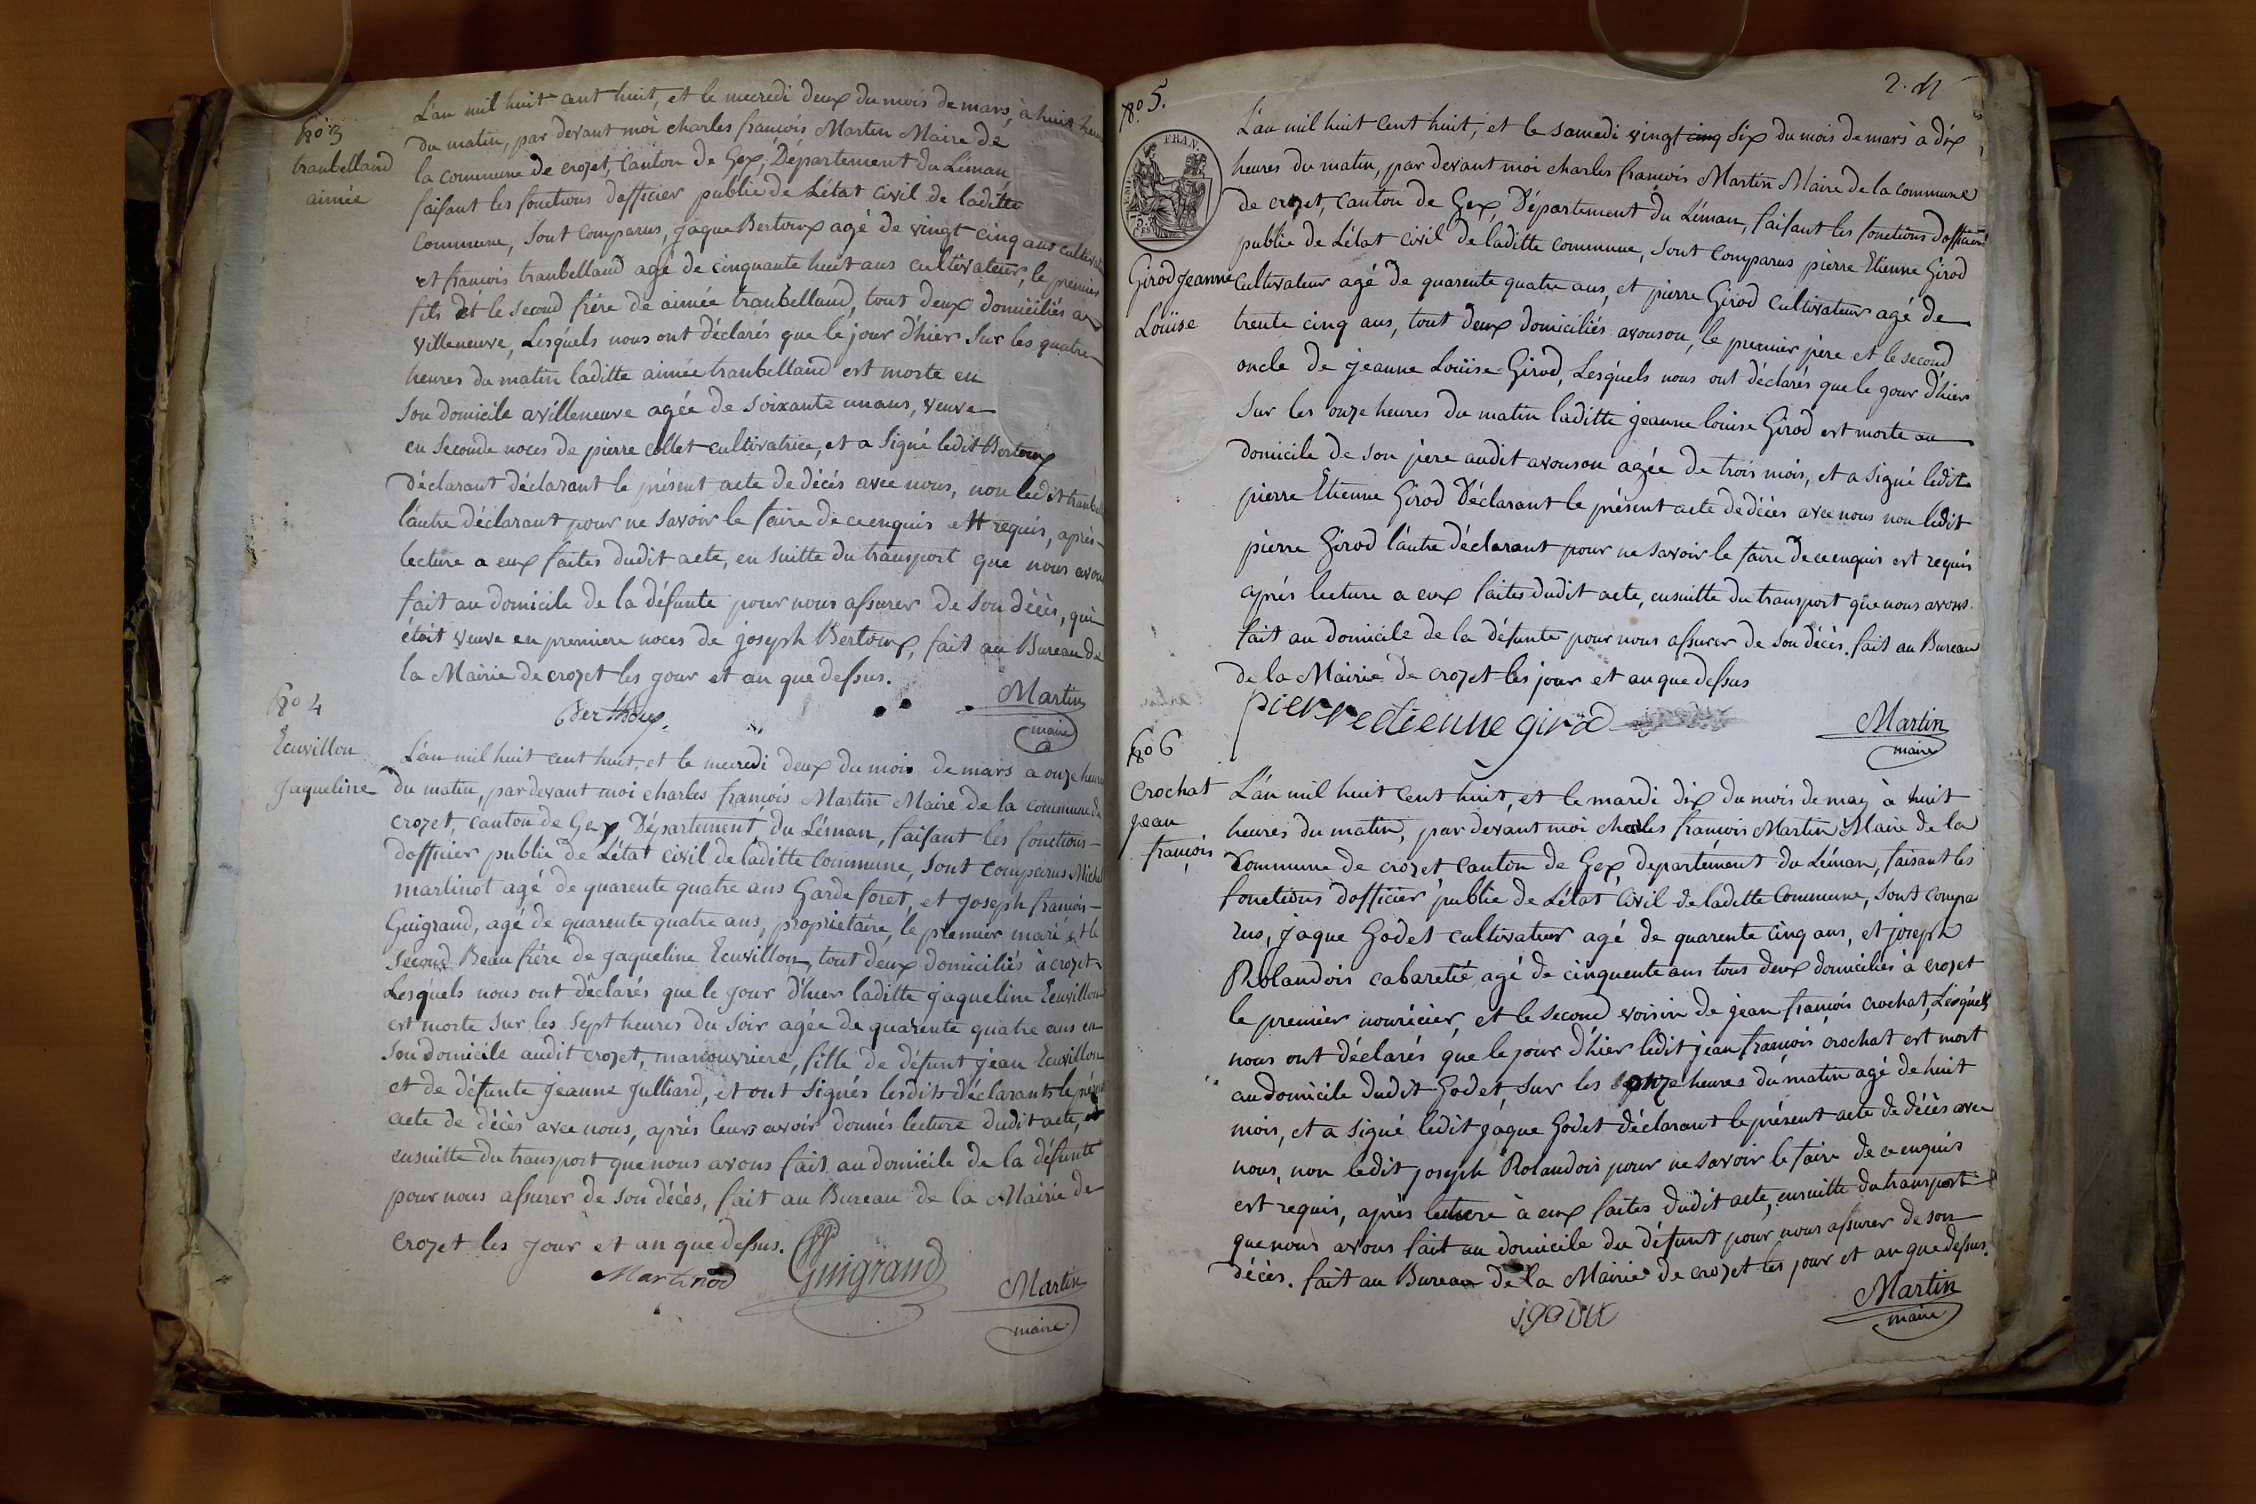 No 3
tranbelland
aimée
L'an mil huit cent huit, et le mecredi deux du mois de mars, à huit heures
du matin, par devant moi charles francois Martin Maire de
la commune de crozet, Canton de Gex, Département du Léman
faisant les fonctions dofficier public de L'état Civil de laditte
Commune, sont comparus, jaque Bertoux agé de vingt cinq ans cultivat
et francois tranbelland agé de cinquante huit ans cultivateur, le premier
fils et le second frére de aimée tranbelland, tout deux domiciliés a
villeneuve, Lesquels nous ont déclarés que le jour d'hier Sur les quatre
heures du matin laditte aimée tranbelland est morte en
son domicile avilleneuve agée de soixante un ans, veuve
en seconde noces de pierre collet cultivatrice, et a signé ledit Bertoux
déclarant déclarant le présent acte de décés avec nous, non ledit tranbel
l'autre déclarant pour ne savoir le faire de ce enquis et requis, aprés
lecture a eux faites dudit acte, en suitte du transport que nous avons
fait au domicile de la défunte pour nous assurer de son décés, qui
étoit veuve en premiere noces de joseph Bertoux, fait au Bureau de
la Mairie de crozet les jour et an que dessus.
Berthoux
Martin
maire
No 4
Ecuvillon
Jaqueline
L'an mil huit cent huit, et le mecredi deux du mois de mars a onze heures
du matin, par devant moi charles francois Martin Maire de la commune de
crozet, canton de Gex, Département du Léman, faisant les fonctions
dofficier public de L'état civil de laditte Commune, sont comparus Michel
martinot agé de quarente quatre ans Garde foret, et joseph francois
Guigrand, agé de quarente quatre ans, proprietaire, le premier mari et le
second Beau frére de jaqueline Ecuvillon, tout deux domiciliés à crozet
Lesquels nous ont déclarés que le jour d'hier laditte jaqueline Ecuvillon
est morte sur les sept heures du soir agée de quarente quatre ans en
son domicile audit crozet, manouvriere, fille de défunt jean Ecuvillon
et de défunte jeanne julliard, et ont signés lesdits déclarants le présent
acte de décés avec nous, aprés leurs avoir donnés lecture dudit acte, et
ensuitte du transport que nous avons fait au domicile de la défunte
pour nous assurer de son décés, fait au Bureau de la Mairie de
crozet les jour et an que dessus.
Martinod
Guigrand
Martin
maire
No 5.
FRAN.
Girod jeanne
Louise
L'an mil huit cent huit, et le samedi vingt cinq six du mois de mars à dix
heures du matin, par devant moi charles francois Martin Maire de la commune
de crozet, canton de Gex, Département du Léman, faisant les fonctions dofficier
public de L'état civil de laditte commune, sont comparus pierre Etienne Girod
Cultivateur agé de quarente quatre ans, et pierre Girod cultivateur agé de
trente cinq ans, tout deux domiciliés avouson, le premier pere et le second
oncle de jeanne Louise Girod, Lesquels nous ont déclarés que le jour d'hier
sur les onze heures du matin laditte jeanne louise Girod est morte au
domicile de son pere audit avouson agée de trois mois, et a signé ledit
pierre Etienne Girod Déclarant le présent acte de décés avec nous non ledit
pierre Girod l'autre déclarant pour ne savoir le faire de ce enquis est requis
aprés lecture a eux faites dudit acte, ensuitte du transport que nous avons
fait au domicile de la défunte pour nous assurer de son décés. fait au Bureau
de la Mairie de crozet les jour et an que dessus
pierre etienne girod
Martin
maire
No 6
crochat
jean
francois
L'an mil huit cent huit, et le mardi dix du mois de may à huit
heures du matin, par devant moi charles francois Martin Maire de la
Commune de crozet canton de Gex, departement du Léman, faisant les
fonctions dofficier public de L'état Civil de laditte Commune, sont compa
rus, jaque Godet cultivateur agé de quarente cinq ans, et joseph
Rolandois cabaretié agé de cinquente ans tous deux domiciliés à crozet
le premier nouricier, et le second voisin de jean francois crochat, Lesquels
nous ont déclarés que le jour d'hier ledit jean francois crochat est mort
au domicile dudit Godet, sur les onze heures du matin agé de huit
mois, et a signé ledit jaque Godet déclarant le présent acte de décés avec
nous, non ledit joseph Rolandois pour ne savoir le faire de ce enquis
est requis, aprés lecture à eux faites dudit acte, ensuitte du transport
que nous avons fait au domicile du défunt pour nous assurer de son
décés. fait au Bureau de la Mairie de crozet les jour et an que dessus.
Martin
maire